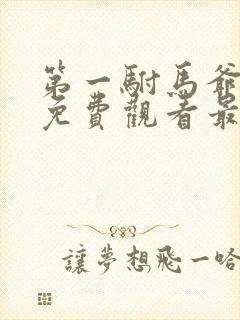 第一駙馬爺
免費觀看最
讓夢想飛一哈